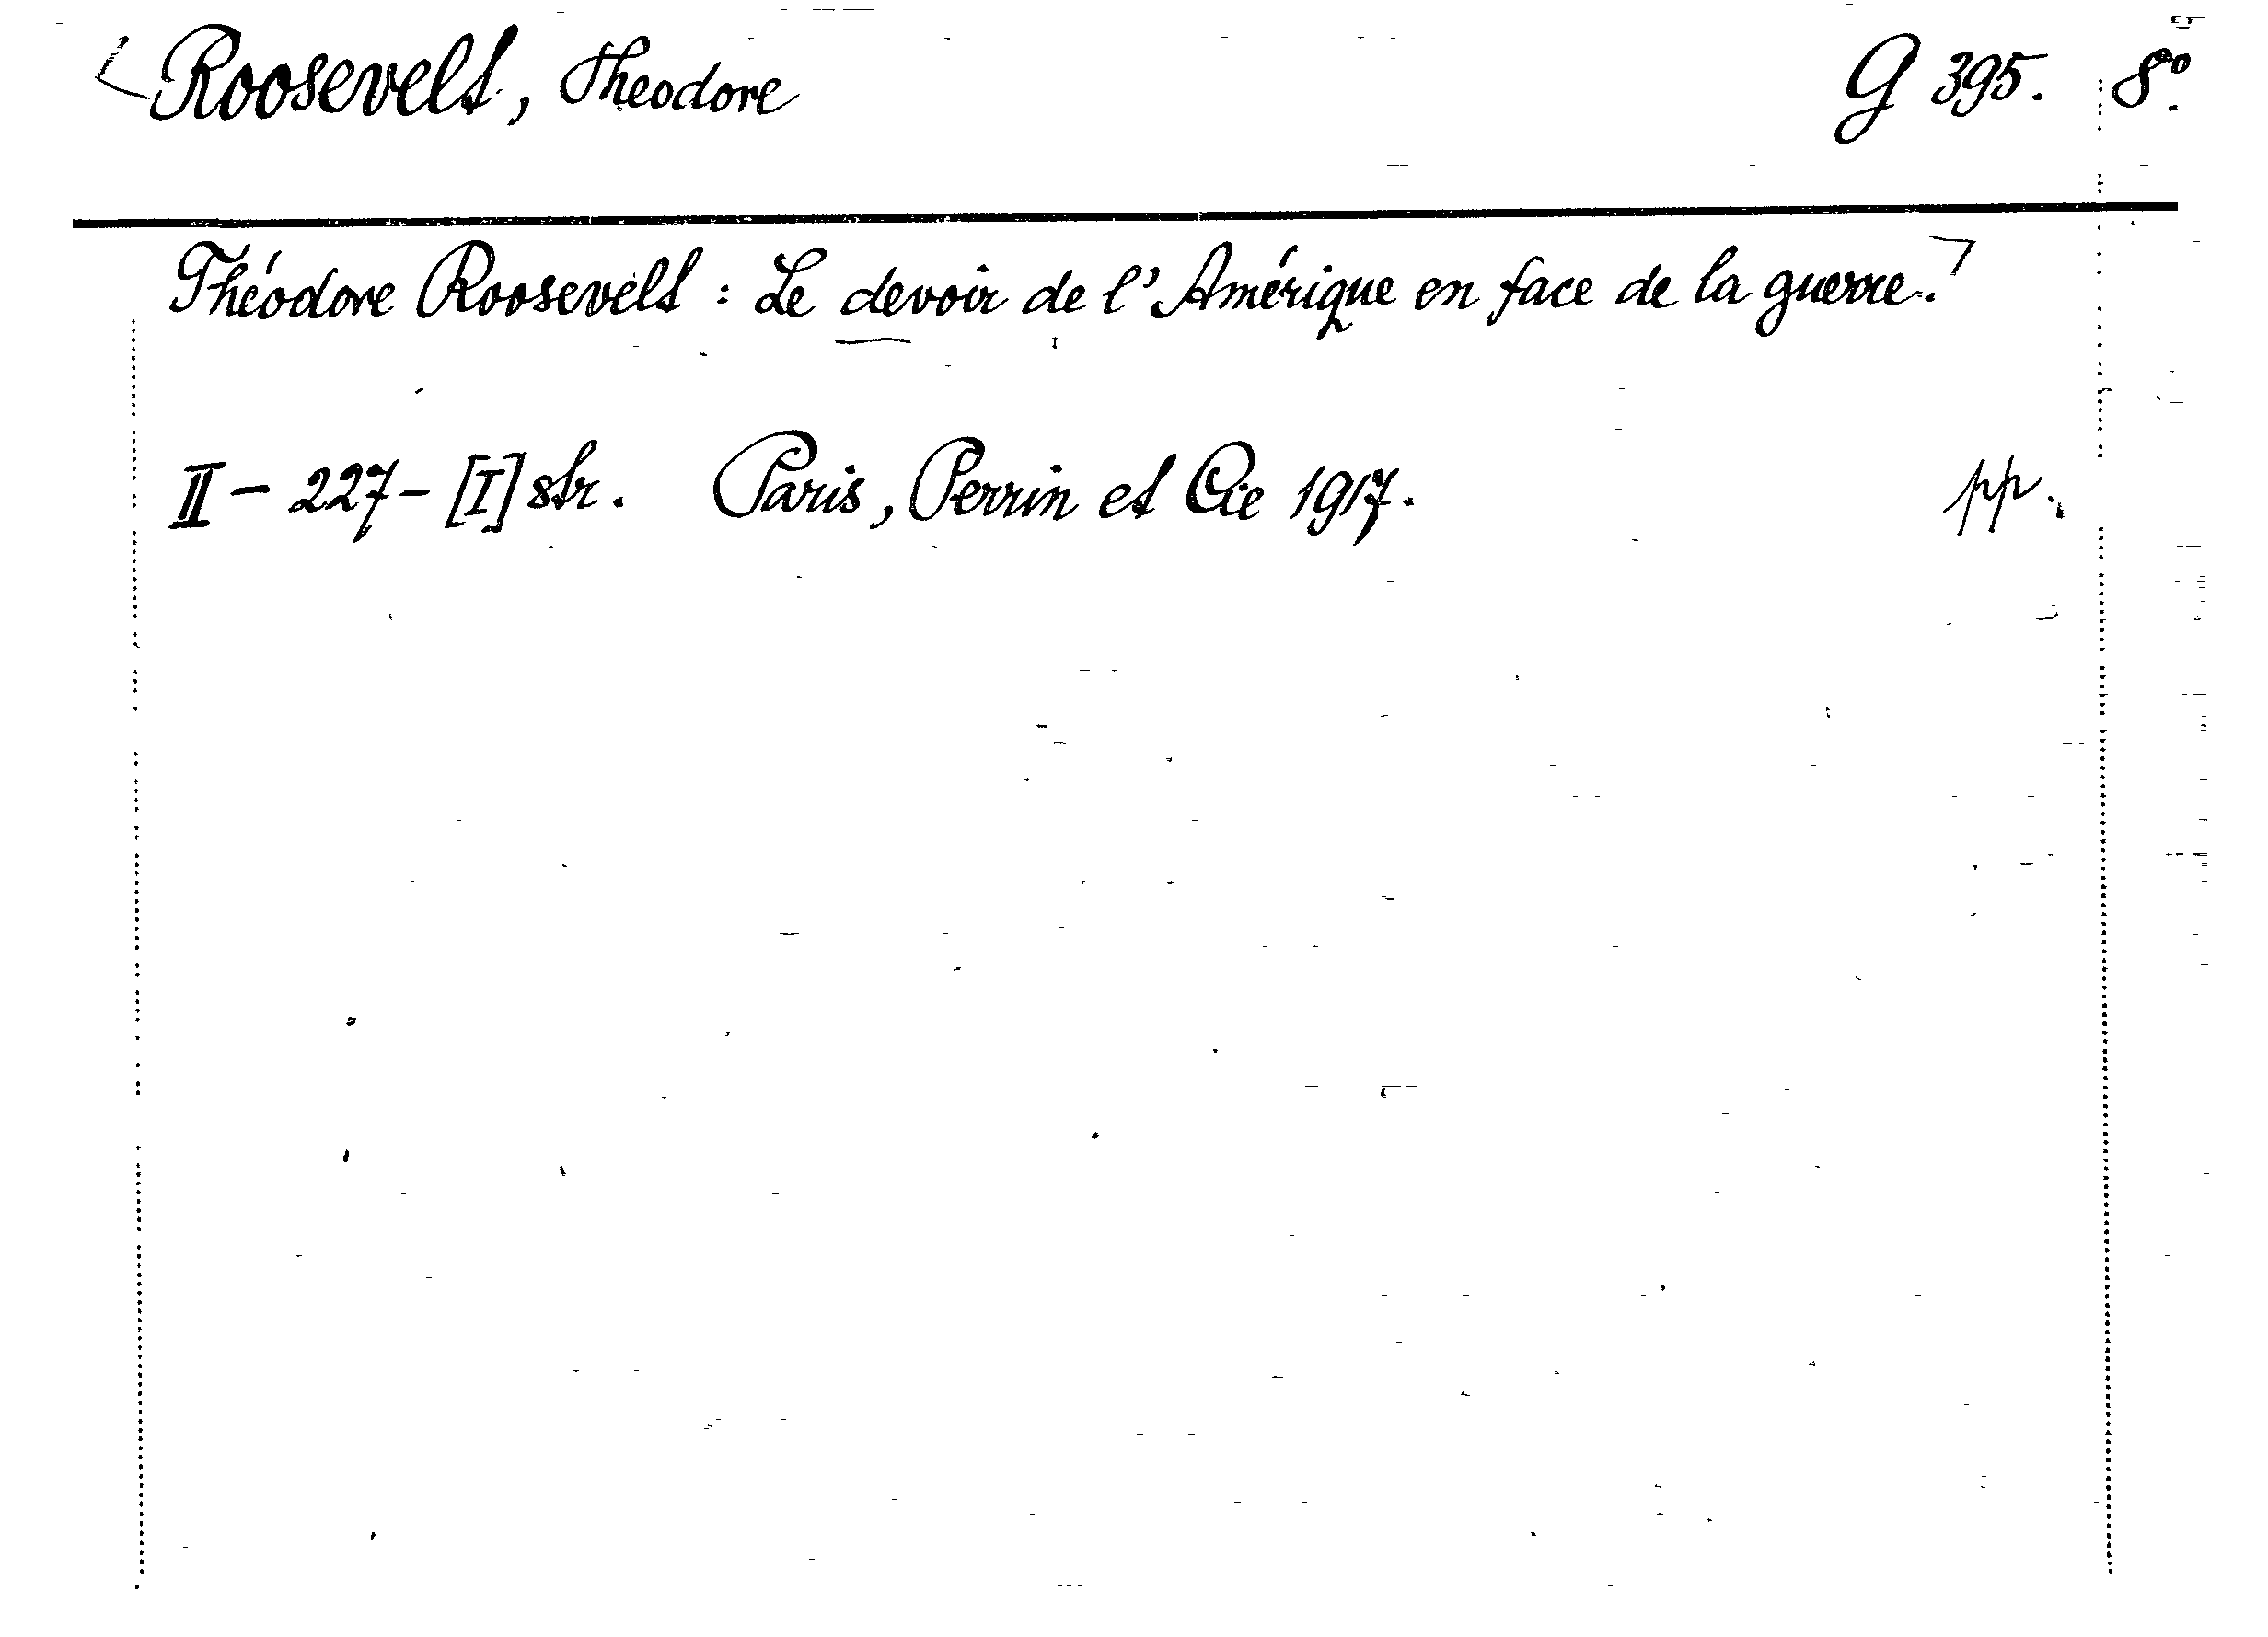 Roosevelt, Theodore G 395. 8°.
Théodore Roosevelt : Le devoir de l'Amérique en face de la guerre.
II - 227 - [I] str. Paris, Perrin et Cie 1917. pp.